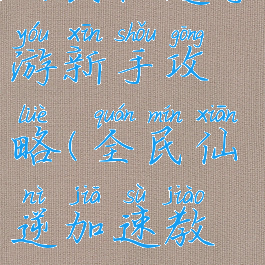 yóu xīn shǒu gōng
游新手攻
lüè quán mín xiān
略(全民仙
nì jiā sù jiào
逆加速教